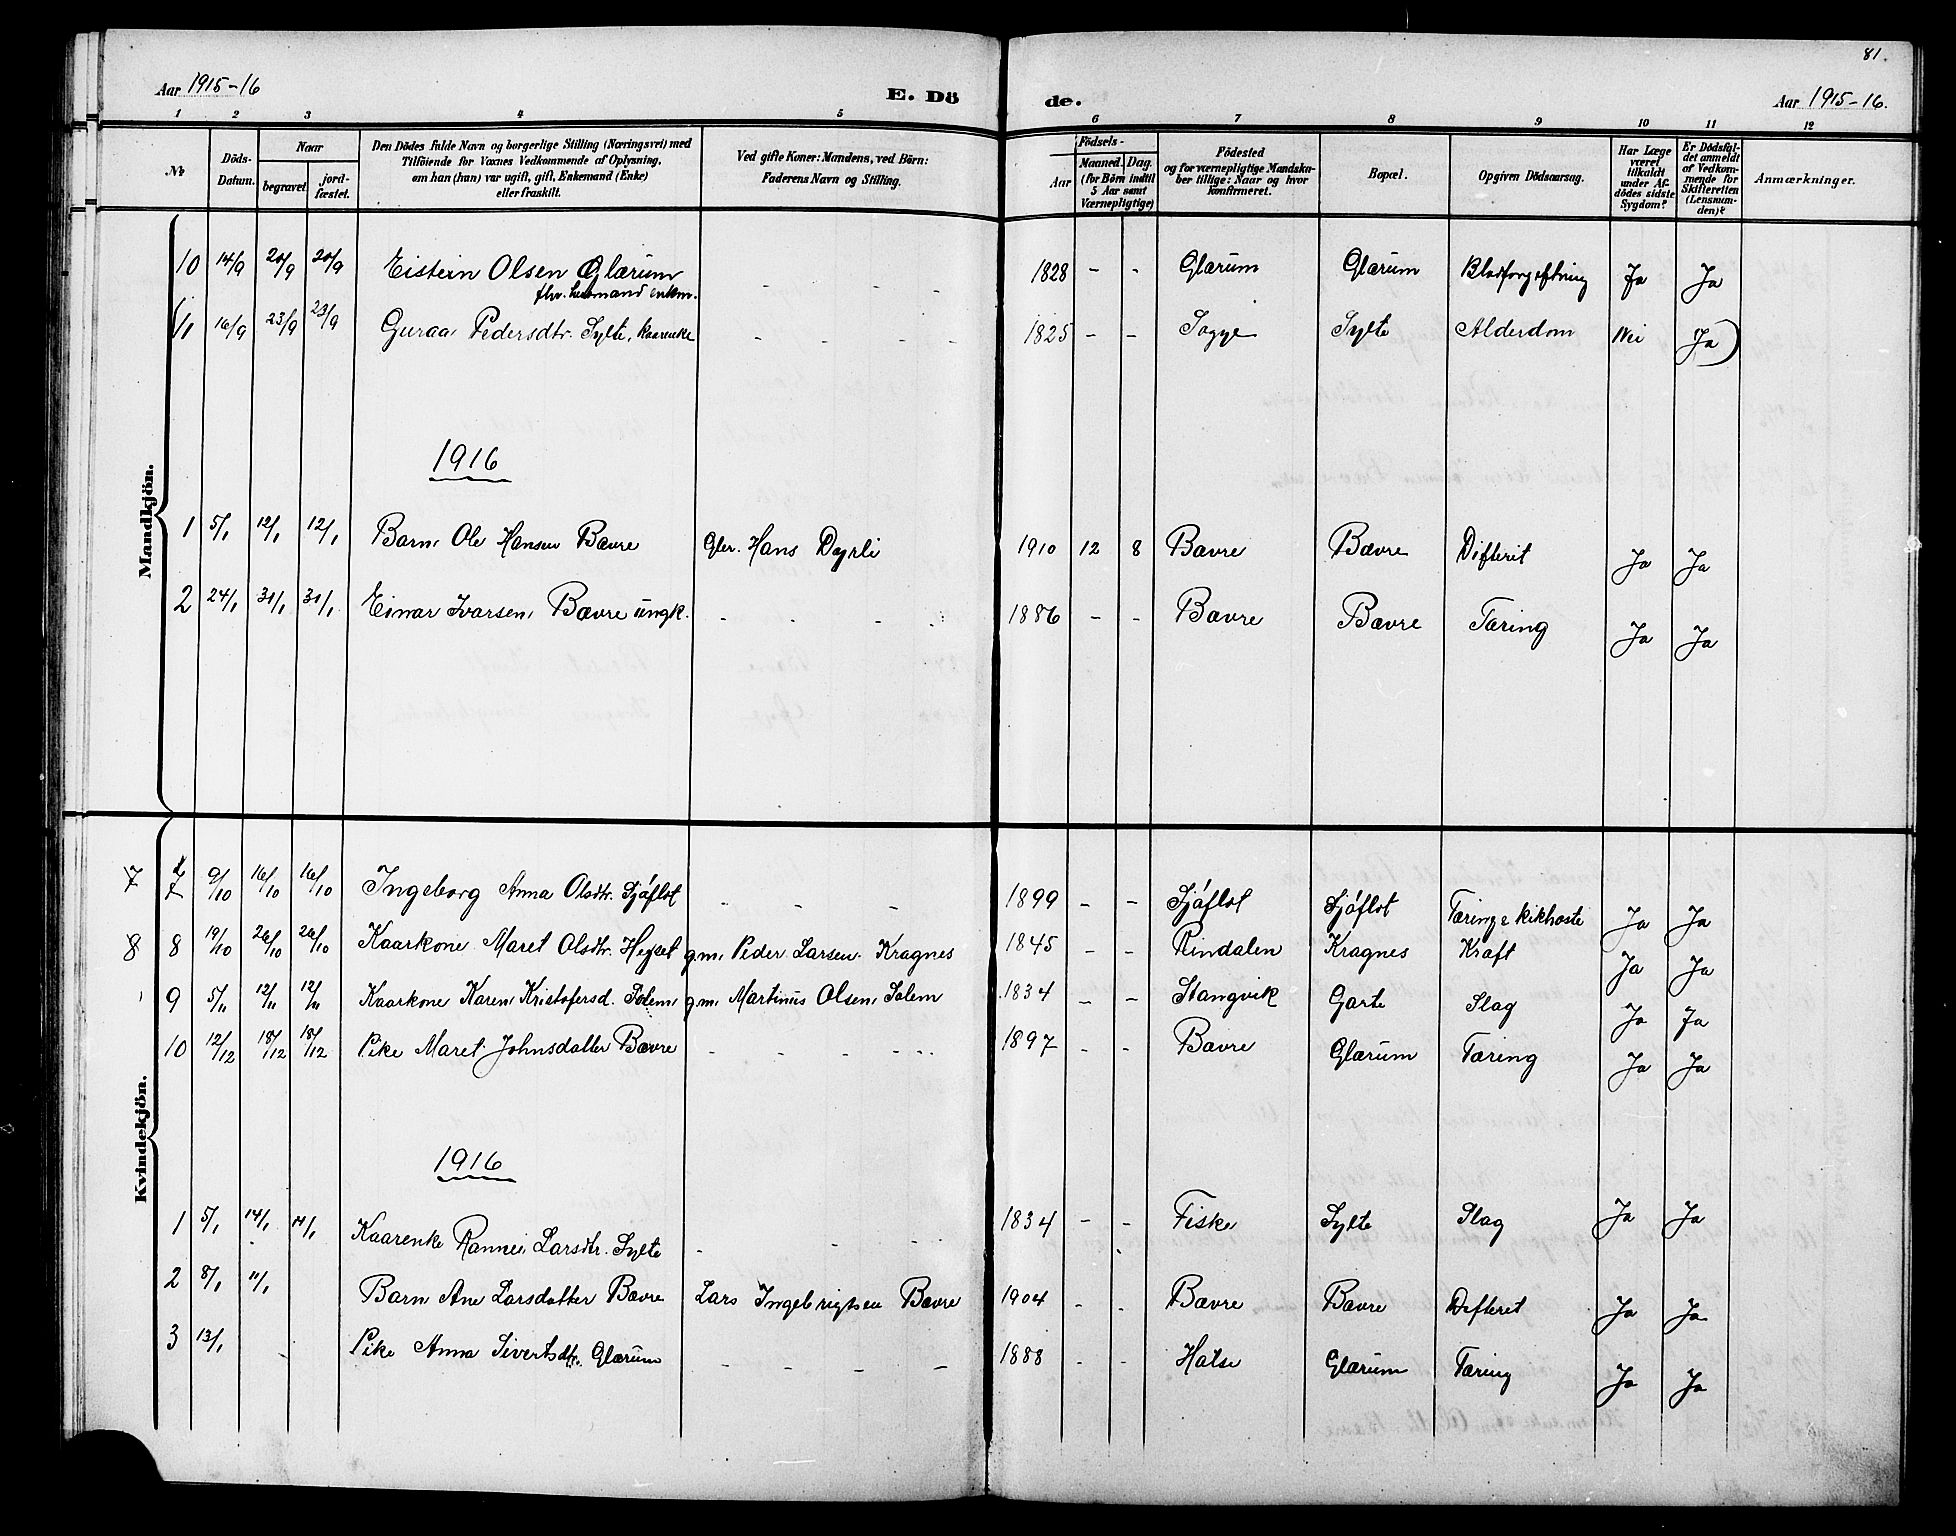 81.
Aar 1915-16
E. Dö
de.
Aar 1915-16.
1 2 3 4 5 6 7 8 9 10 11 12
No
Döds-Datum.
Naar
begravet.
jord-fæstet.
Den Dödes fulde Navn og borgerlige Stilling (Næringsvei) med
Tilföiende for Voxnes Vedkommende af Oplysning,
om han (hun) var ugift, gift, Enkemand (Enke)
eller fraskilt.
Ved gifte Koner: Mandens, ved Börn:
Faderens Navn og Stilling.
Födsels-
Aar
Maaned. Dag.
(for Börn indtil
5 Aar samt
Værnepligtige)
Födested
og for værnepligtige Mandska-
ber tillige: Naar og hvor
konfirmeret.
Bopæl.
Opgiven Dödsaarsag.
Har Læge
været
tilkaldt
under Af-
dödes sidste
Sygdom?
Er Dödsfal-
det anmeldt
af Vedkom-
mende for
Skifteretten
(Lensman-
den)?
Anmærkninger.
Mandkjön.
10 14/9 20/9 20/9 Eistein Olsen Glærum - - - 1828 - - Glærum Glærum Blodforgiftning Ja Ja
fhv. husmand enkm.
11 16/9 23/9 23/9 Guraa Pedersdtr. Sylte, kaarenke - - - - 1825 - - Sogge Sylte Alderdom Nei Ja)
1916
1 5/1 12/1 12/1 Barn Ole Hansen Bævre Gbr. Hans Dyrli 1910 12 8 Bævre Bævre Difterit Ja Ja
2 24/1 31/1 31/1 Einar Ivarsen Bævre ungk. - - - - 1886 - - Bævre Bævre Tæring Ja Ja
Kvindekjön.
7 7 9/10 16/10 16/10 Ingeborg Anna Olsdtr. Sjøflot - - - 1899 - - Sjøflot Sjøflot Tæring & kikhoste Ja Ja
8 8 19/10 26/10 26/10 Kaarkone Maret Olsdtr. g.m. Peder Larsen Kragnes 1845 - - Rindalen Kragnes Kræft Ja Ja
9 5/11 12/11 12/11 Kaarkone Karen Kristofersd. Solem g.m. Martinus Olsen Solem 1834 - - Stangvik Garte Slag Ja Ja
10 12/12 18/12 18/12 Pike Maret Johnsdatter Bævre - - - - - 1897 - - Bævre Glærum Tæring Ja Ja
1916
1 5/1 14/1 14/1 Kaarenke Rannei Larsdtr. Sylte - - - - 1834 - - Fiske Sylte Slag Ja Ja
2 8/1 11/1 Barn Ane Larsdatter Bævre Lars Ingebrigtsen Bævre 1904 - - Bævre Bævre Difterit Ja Ja
3 13/1 Pike Anna Sivertsdtr. Glærum - - - - 1888 - - Halse Glærum Tæring Ja Ja